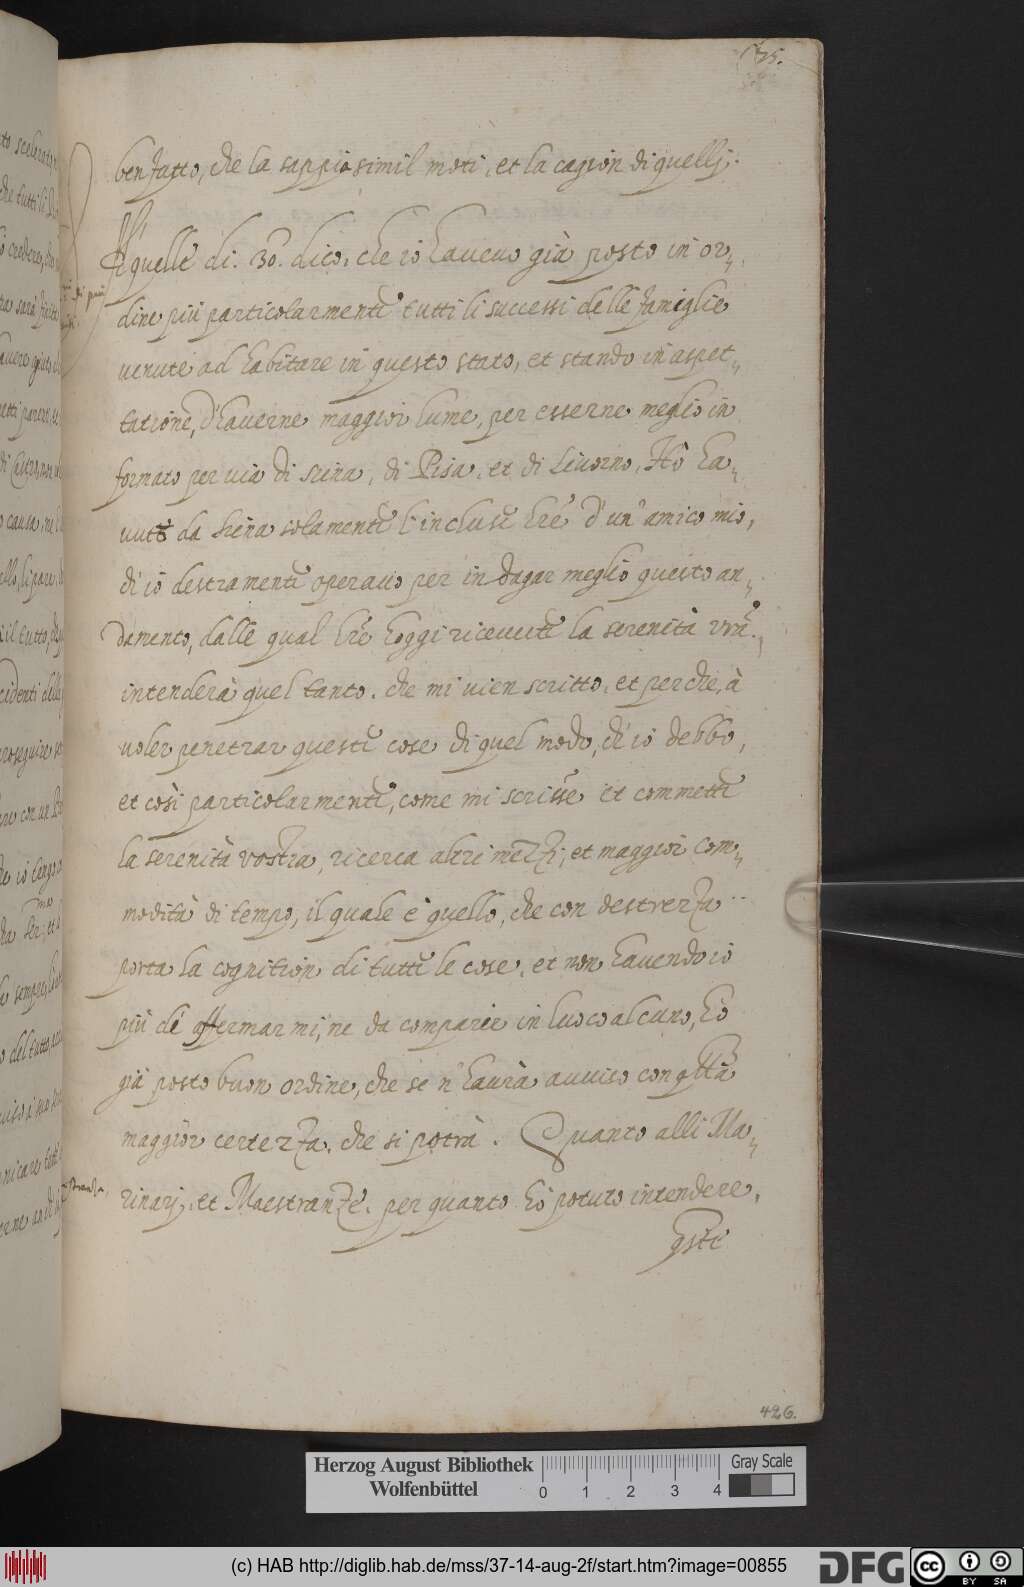 ben fatto, che la sappia simil moti, et la cagion di quellj.
quelle di. 30. dico, che io haueuo già posto in or„
dine più particolarmente tutti li successi delle famiglie
uenute ad habitare in questo stato, et stando in aspet„
tatione, d'hauerne maggior lume, per esserne meglio in
formato per uia di siena, di Pisa, et di Liuorno, Hò ha„
uute da siena solamente l'incluse lré d'un' amico mio,
ch' io destramente operauo per indagar meglio questo an„
damento, dalle qual lré hoggi riceuute la serenità vrã„
intenderà quel tanto, che mi uien scritto, et perche, à
uoler penetrar queste cose di quel modo, ch' io debbo,
et così particolarmente, come mi scrisse et commette
la serenità vostra, ricerca altri mezzi, et maggior com„
modità di tempo, il quale è quello, che con destrezza
porta la cognition di tutte le cose, et non hauendo io
più da fermarmi, ne da comparir in luoco alcuno, hò
già posto buon ordine, che se n' haurà auuiso con
maggior certezza, che si potrà. Quanto alli Ma„
rinarj, et Maestranze, per quanto hò potuto intendere,
qste
426.
Herzog August Bibliothek
Wolfenbüttel
0 1 2 3 4
Gray Scale
(c) HAB http://diglib.hab.de/mss/37-14-aug-2f/start.htm?image=00855
DFG
cc BY SA